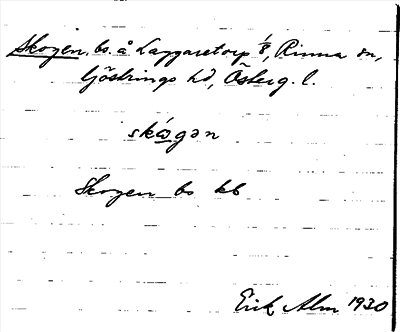 Skogen, bs. å Laggaretorp 1/8, Rinna sn,
Göstrings hd, Österg. l.
skógən
Skogen bs kb
Erik Alm 1930